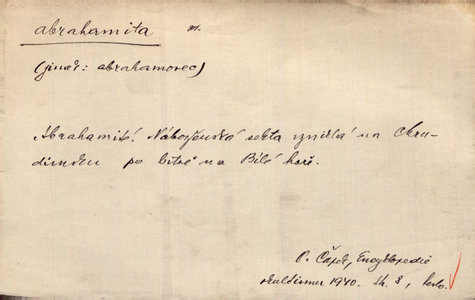 abrahamita m.
(jinak: abrahamovec)
Abrahamité. Náboženská sekta vzniklá na Chru-
dimsku po bitvě na Bílé hoře.
Encyklopedie
1940. str. 8,